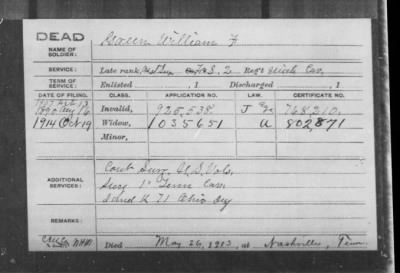 DEAD
NAME OF SOLDIER: Green William F
SERVICE: Late rank, F & S, 2 Reg't Mich Cav,
TERM OF SERVICE: Enlisted , 1 Discharged , 1
DATE OF FILING. CLASS. APPLICATION NO. LAW. CERTIFICATE NO.
1890 Aug 16 Invalid, 925,538 J 768,210.
1914 Oct 19 Widow, 1035651 802,871
Minor,
ADDITIONAL SERVICES: Cont Surg. U.S. Vols,
Surg 1" Tenn Cav.
I and K 71 Ohio Inf
REMARKS:
Died May 26, 1913, at Nashville, Tenn.